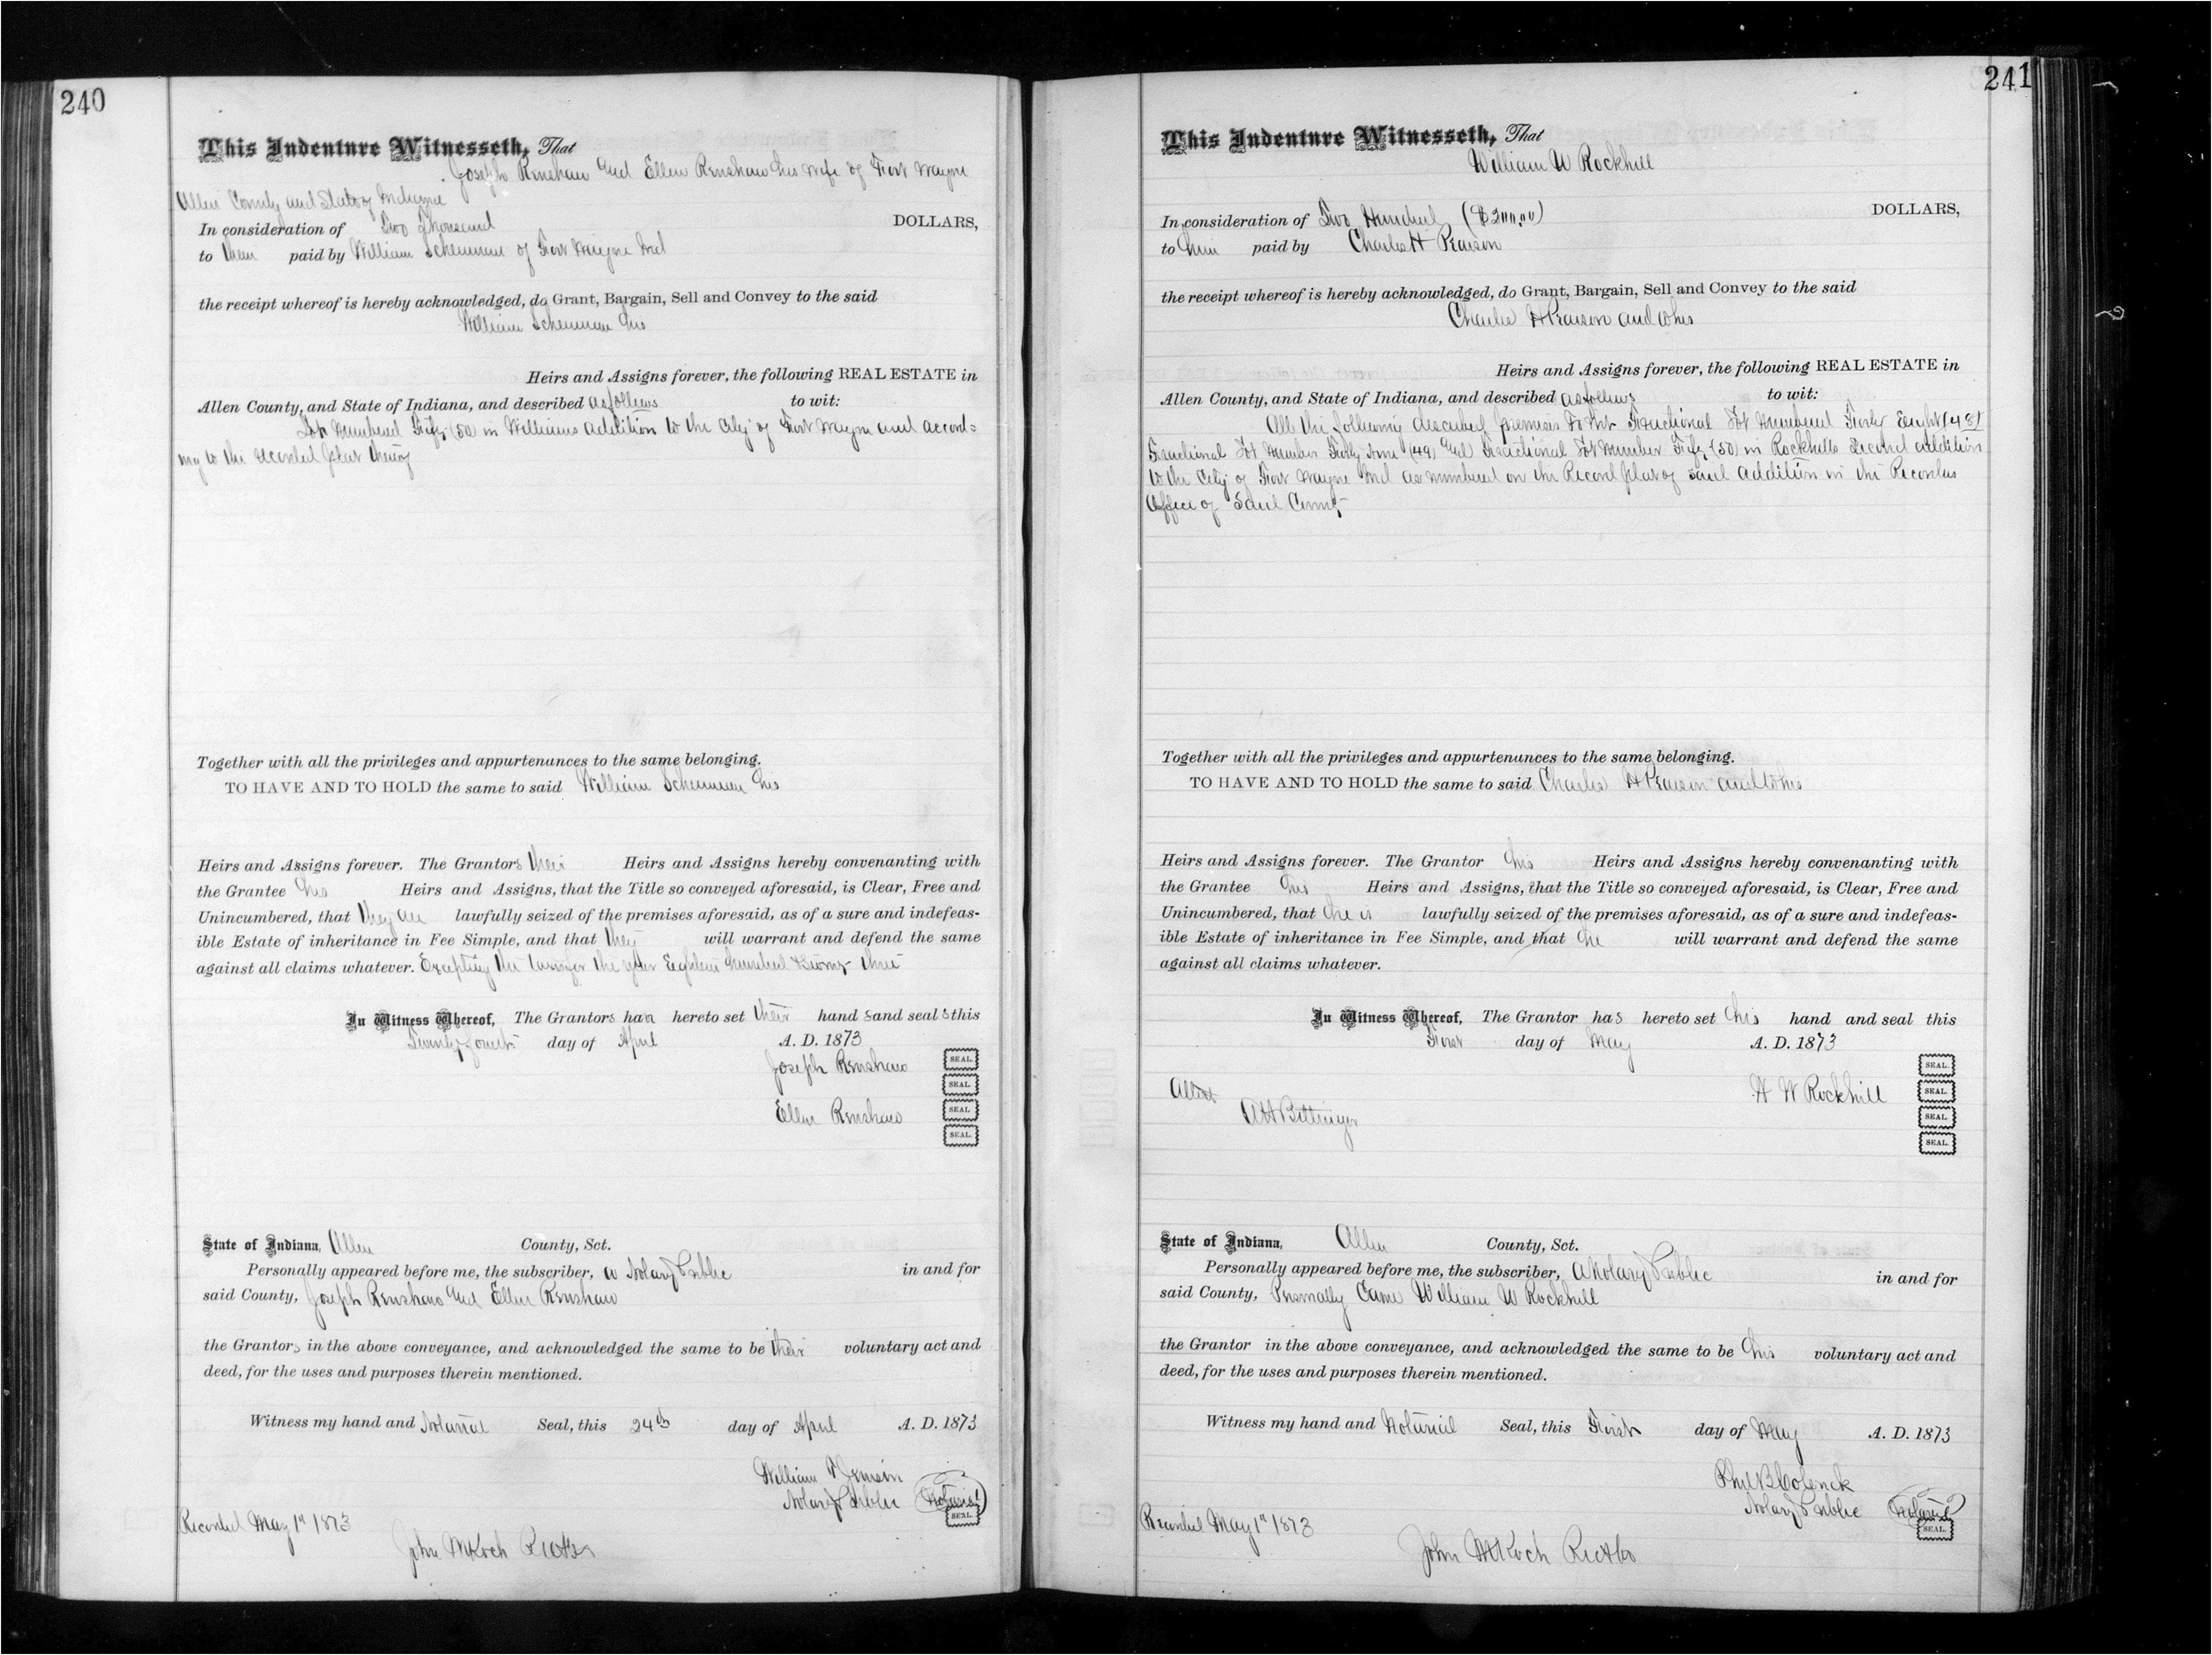 240
This Indenture Witnesseth, That
Joseph Renshaw and Ellen Renshaw his wife of Fort Wayne
Allen County and State of Indiana
In consideration of Two Thousand DOLLARS,
to them paid by William Scheuman of Fort Wayne Ind
the receipt whereof is hereby acknowledged, do Grant, Bargain, Sell and Convey to the said
William Scheuman his
Heirs and Assigns forever, the following REAL ESTATE in
Allen County, and State of Indiana, and described as follows to wit:
Lot numbered Fifty (50) in Williams addition to the City of Fort Wayne and accord=
ing to the recorded plat thereof
Together with all the privileges and appurtenances to the same belonging.
TO HAVE AND TO HOLD the same to said William Scheuman his
Heirs and Assigns forever. The Grantors their Heirs and Assigns hereby convenanting with
the Grantee his Heirs and Assigns, that the Title so conveyed aforesaid, is Clear, Free and
Unincumbered, that they are lawfully seized of the premises aforesaid, as of a sure and indefeas-
ible Estate of inheritance in Fee Simple, and that they will warrant and defend the same
against all claims whatever. Excepting the taxes for the year Eighteen hundred & Seventy three
In Witness Whereof, The Grantors have hereto set their hands and seals this
Twenty fourth day of April A. D. 1873
Joseph Renshaw SEAL.
SEAL.
Ellen Renshaw SEAL.
SEAL.
State of Indiana, Allen County, Sct.
Personally appeared before me, the subscriber, a Notary Public in and for
said County, Joseph Renshaw and Ellen Renshaw
the Grantors in the above conveyance, and acknowledged the same to be their voluntary act and
deed, for the uses and purposes therein mentioned.
Witness my hand and Notarial Seal, this 24th day of April A. D. 1873
William
Notary Public Notarial SEAL.
Recorded May 1st 1873
John M Koch
241
This Indenture Witnesseth, That
William W Rockhill
In consideration of Two Hundred ($200.00) DOLLARS,
to him paid by Charles H Pearson
the receipt whereof is hereby acknowledged, do Grant, Bargain, Sell and Convey to the said
Charles H Pearson and to his
Heirs and Assigns forever, the following REAL ESTATE in
Allen County, and State of Indiana, and described as follows to wit:
All the following described premises To Wit Fractional Lot Numbered Forty Eight (48)
Fractional Lot Number Forty nine (49) and Fractional Lot Number Fifty (50) in Rockhills Second addition
to the City of Fort Wayne Ind as numbered on the Record plat of said addition in the Recorders
Office of Said County
Together with all the privileges and appurtenances to the same belonging.
TO HAVE AND TO HOLD the same to said Charles H Pearson and to his
Heirs and Assigns forever. The Grantor his Heirs and Assigns hereby convenanting with
the Grantee his Heirs and Assigns, that the Title so conveyed aforesaid, is Clear, Free and
Unincumbered, that he is lawfully seized of the premises aforesaid, as of a sure and indefeas-
ible Estate of inheritance in Fee Simple, and that he will warrant and defend the same
against all claims whatever.
In Witness Whereof, The Grantor has hereto set his hand and seal this
First day of May A. D. 1873
SEAL.
Attest W W Rockhill SEAL.
A H Bittinger SEAL.
SEAL.
State of Indiana, Allen County, Sct.
Personally appeared before me, the subscriber, A Notary Public in and for
said County, Personally Came William W Rockhill
the Grantor in the above conveyance, and acknowledged the same to be his voluntary act and
deed, for the uses and purposes therein mentioned.
Witness my hand and Notarial Seal, this First day of May A. D. 1873
Phil B Colerick
Notary Public Notarial SEAL.
Recorded May 1st 1873
John M Koch